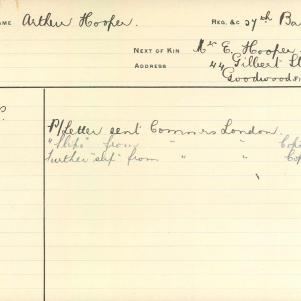 NAME Arthur Hooper. REG. &C 27th Ba
NEXT OF KIN Mr E. Hooper
ADDRESS 44 Gilbert St
Goodwood
P/Letter sent Commrs London.
"Slips" from " " Cop
Further "slip" from " " Cop